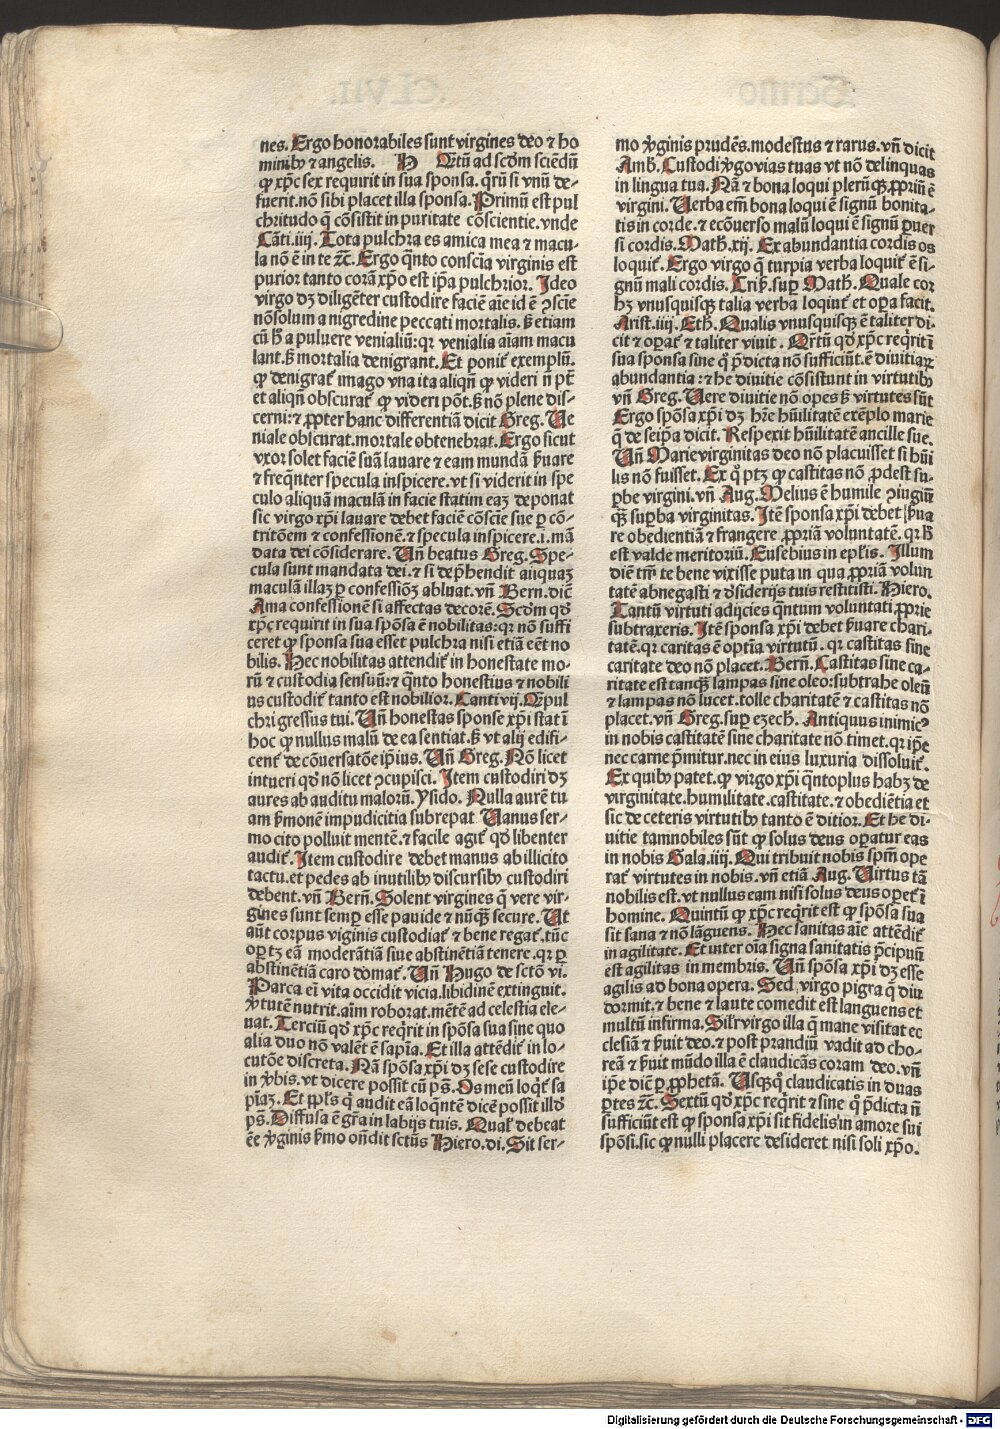 nes. Ergo honorabiles sunt virgines deo ⁊ ho
minibꝰ ⁊ angelis. H Q̈tū ad scd̄m sciēdū
ꝙ xp̄c sex requirit in sua sponsa. qͥrū si vnū de-
fuerit. nō sibi placet illa sponsa. Primū est pul
chritudo q̄ cōsistit in puritate cōscientie. vnde
Cāti. iiij. Tota pulchra es amica mea ⁊ macu-
la nō ē in te ⁊c̄. Ergo qͣnto consciā virginis est
purior tanto corā xp̄o est ip̄a pulchrior. Ideo
virgo dꝫ diligēter custodire faciē aīe id ē ꝯscīe
nōsolum a nigredine peccati mortalis. sꝫ etiam
cū hͦ a puluere venialiū: qꝛ venialia aīam macu
lant. sꝫ mortalia denigrant. Et ponit̄ exemplū.
ꝙ denigrat̄ imago vna ita aliqn̄ ꝙ videri n̄ pt̄
et aliqn̄ obscurat̄ ꝙ videri pōt. sꝫ nō plene dis-
cerni: ⁊ ꝓpter hanc differentiā dicit Greg. Ue
niale obscurat. mortale obtenebrat. Ergo sicut
vxor solet faciē suā lauare ⁊ eam mundā ẜuare
⁊ freqn̄ter specula inspicere. vt si viderit in spe
culo aliquā maculā in facie statim eaꝫ deponat
sic virgo xp̄i lauare debet faciē cōscīe sue ꝑ cō-
tritōem ⁊ confessionē. ⁊ specula inspicere. i. mā
data dei cōsiderare. Un̄ beatus Greg. Spe-
cula sunt mandata dei. ⁊ si dep̄hendit aliquaꝫ
maculā illaꝫ ꝑ confessionē abluat. vn̄ Bern. dic̄
Ama confessionē si affectas decorē. Scd̄m qd̄
xp̄c requirit in sua spōsa ē nobilitas: qꝛ nō suffi
ceret ꝙ sponsa sua esset pulchra nisi etiā eēt no
bilis. Hec nobilitas attendit̄ in honestate mo-
rū ⁊ custodia sensuū: ⁊ qͣnto honestius ⁊ nobili
us custodit̄ tanto est nobilior. Canti vij. Q̈ꝫ pul
chri gressus tui. Un̄ honestas sponse xp̄i stat ī
hoc ꝙ nullus malū de ea sentiat. sꝫ vt alij edifi-
cent̄ de cōuersatōe ip̄ius. Un̄ Greg. Nō licet
intueri qd̄ nō licet ꝯcupisci. Item custodiri dꝫ
aures ab auditu malorū. Ysido. Nulla aurē tu
am ẜmonē impudicitia subrepat Uanus ser-
mo cito polluit mentē. ⁊ facile agit̄ qd̄ libenter
audit̄. Item custodire debet manus ab illicito
tactu. et pedes ab inutilibꝰ discursibꝰ custodiri
debent. vn̄ Bern̄. Solent virgines q̄ vere vir-
gines sunt semꝑ esse pauide ⁊ nūqͣꝫ secure. Ut
aūt corpus v̄ginis custodiat̄ ⁊ bene regat̄. tūc
oꝑtꝫ eā moderātiā siue abstinētiā tenere. qꝛ ꝑ
abstinētiā caro domat̄. Un̄ Hugo de sctō vi.
Parca ei vita occidit vicia. libidinē extinguit.
v̓tutē nutrit. aīm roborat. mētē ad celestia ele-
uat. Terciū qd̄ xp̄c req̄rit in spōsa sua sine quo
alia duo nō valēt ē sapīa. Et illa attēdit̄ in lo-
cutōe discreta. Nā spōsa xp̄i dꝫ sese custodire
in v̓bis. vt dicere possit cū ps̄. Os meū loqͣt̄ sa
pīaꝫ. Et pp̄ls q̄ audit eā loqn̄tē dicē possit illd̄
ps̄. Diffusa ē gr̄a in labijs tuis. Qual̓ debeat
ēe v̓ginis ẜmo on̄dit sctūs Hiero. di. Sit ser-
mo v̓ginis prudēs. modestus ⁊ rarus. vn̄ dicit
Amb̓. Custodi v̓go vias tuas vt nō delinquas
in lingua tua. Nā ⁊ bona loqui plerūqꝫ ꝓpriū ē
virgini. Uerba em̄ bona loqui ē signū bonita-
tis in corde. ⁊ ecōuerso malū loqui ē signū ꝑuer
si cordis. Math̓. xij. Ex abundantia cordis os
loquit̄. Ergo virgo q̄ turpia verba loquit̄ ē si-
gnū mali cordis. Crisͥ. suꝑ Math̓. Quale cor
hꝫ vnusquisqꝫ talia verba loquit̄ et oꝑa facit.
Arist. iiij. Eth̓. Qualis vnusquisqꝫ ē taliter di-
cit ⁊ oꝑat̄ ⁊ taliter viuit. Q̈rtū qd̄ xp̄c req̄rit ī
sua sponsa sine qͦ p̄dicta nō sufficiūt. ē diuitiaꝝ
abundantia: ⁊ he diuitie cōsistunt in virtutibꝰ
vn̄ Greg. Uere diuitie nō opes sꝫ virtutes sūt
Ergo spōsa xp̄i dꝫ hr̄e hūilitatē exēplo marie
q̄ de seip̄a dicit. Respexit hūilitatē ancille sue.
Un̄ Marie virginitas deo nō placuisset si hūi
lis nō fuisset. Ex qͦ ptꝫ ꝙ castitas nō ꝓdest su-
ꝑbe virgini. vn̄ Aug. Melius ē humile ꝯiugiū
qͣꝫ suꝑba virginitas. Itē sponsa xp̄i debet ẜua
re obedientiā ⁊ frangere ꝓpriā voluntatē. qꝛ hͦ
est valde meritoriū. Eusebius in epl̄is. Illum
diē tm̄ te bene vixisse puta in qua ꝓpriā volun
tatē abnegasti ⁊ d̓siderijs tuis restitisti. Hiero.
Tantū virtuti adijcies qͣntum voluntati ꝓprie
subtraxeris. Itē sponsa xp̄i debet ẜuare chari-
tatē. qꝛ caritas ē optīa virtutū. qꝛ castitas sine
caritate deo nō placet. Bern̄. Castitas sine ca-
ritate est tanqͣꝫ lampas sine oleo: subtrahe oleū
⁊ lampas nō lucet. tolle charitatē ⁊ castitas nō
placet. vn̄ Greg. suꝑ ezech̓. Antiquus inimicꝰ
in nobis castitatē sine charitate nō timet. qꝛ ip̄e
nec carne p̄mitur. nec in eius luxuria dissoluit̄.
Ex quibꝰ patet. ꝙ virgo xp̄i qͣntoplus habꝫ de
virginitate. humilitate. castitate. ⁊ obediētia et
sic de ceteris virtutibꝰ tanto ē ditior. Et he di-
uitie tamnobiles sūt ꝙ solus deus oꝑatur eas
in nobis Gala. iiij. Qui tribuit nobis spm̄ ope
rat̄ virtutes in nobis. vn̄ etiā Aug. Uirtus tā
nobilis est. vt nullus eam nisi solus deus oꝑet̄ ī
homine. Quintū ꝙ xp̄c req̄rit est ꝙ spōsa sua
sit sana ⁊ nō lāguens. Hec sanitas aīe attēdit̄
in agilitate. Et inter oīa signa sanitatis p̄cipuū
est agilitas in membris. Un̄ spōsa xp̄i dꝫ esse
agilis ad bona opera. Sed virgo pigra q̄ diu
dormit. ⁊ bene ⁊ laute comedit est languens et
multū infirma. Sil̓r virgo illa q̄ mane visitat ec
clesiā ⁊ ẜuit deo. ⁊ post prandiū vadit ad cho-
reā ⁊ ẜuit mūdo illa ē claudicās coram deo. vn̄
ip̄e dic̄ ꝑ ꝓphetā. Usqͣqͦ claudicatis in duas
ꝑtes ⁊c̄. Sextū qd̄ xp̄c req̄rit ⁊ sine qͦ p̄dicta n̄
sufficiūt est ꝙ sponsa xp̄i sit fidelis in amore sui
spōsi. sic ꝙ nulli placere desideret nisi soli xp̄o.
Digitalisierung gefördert durch die Deutsche Forschungsgemeinschaft - DFG